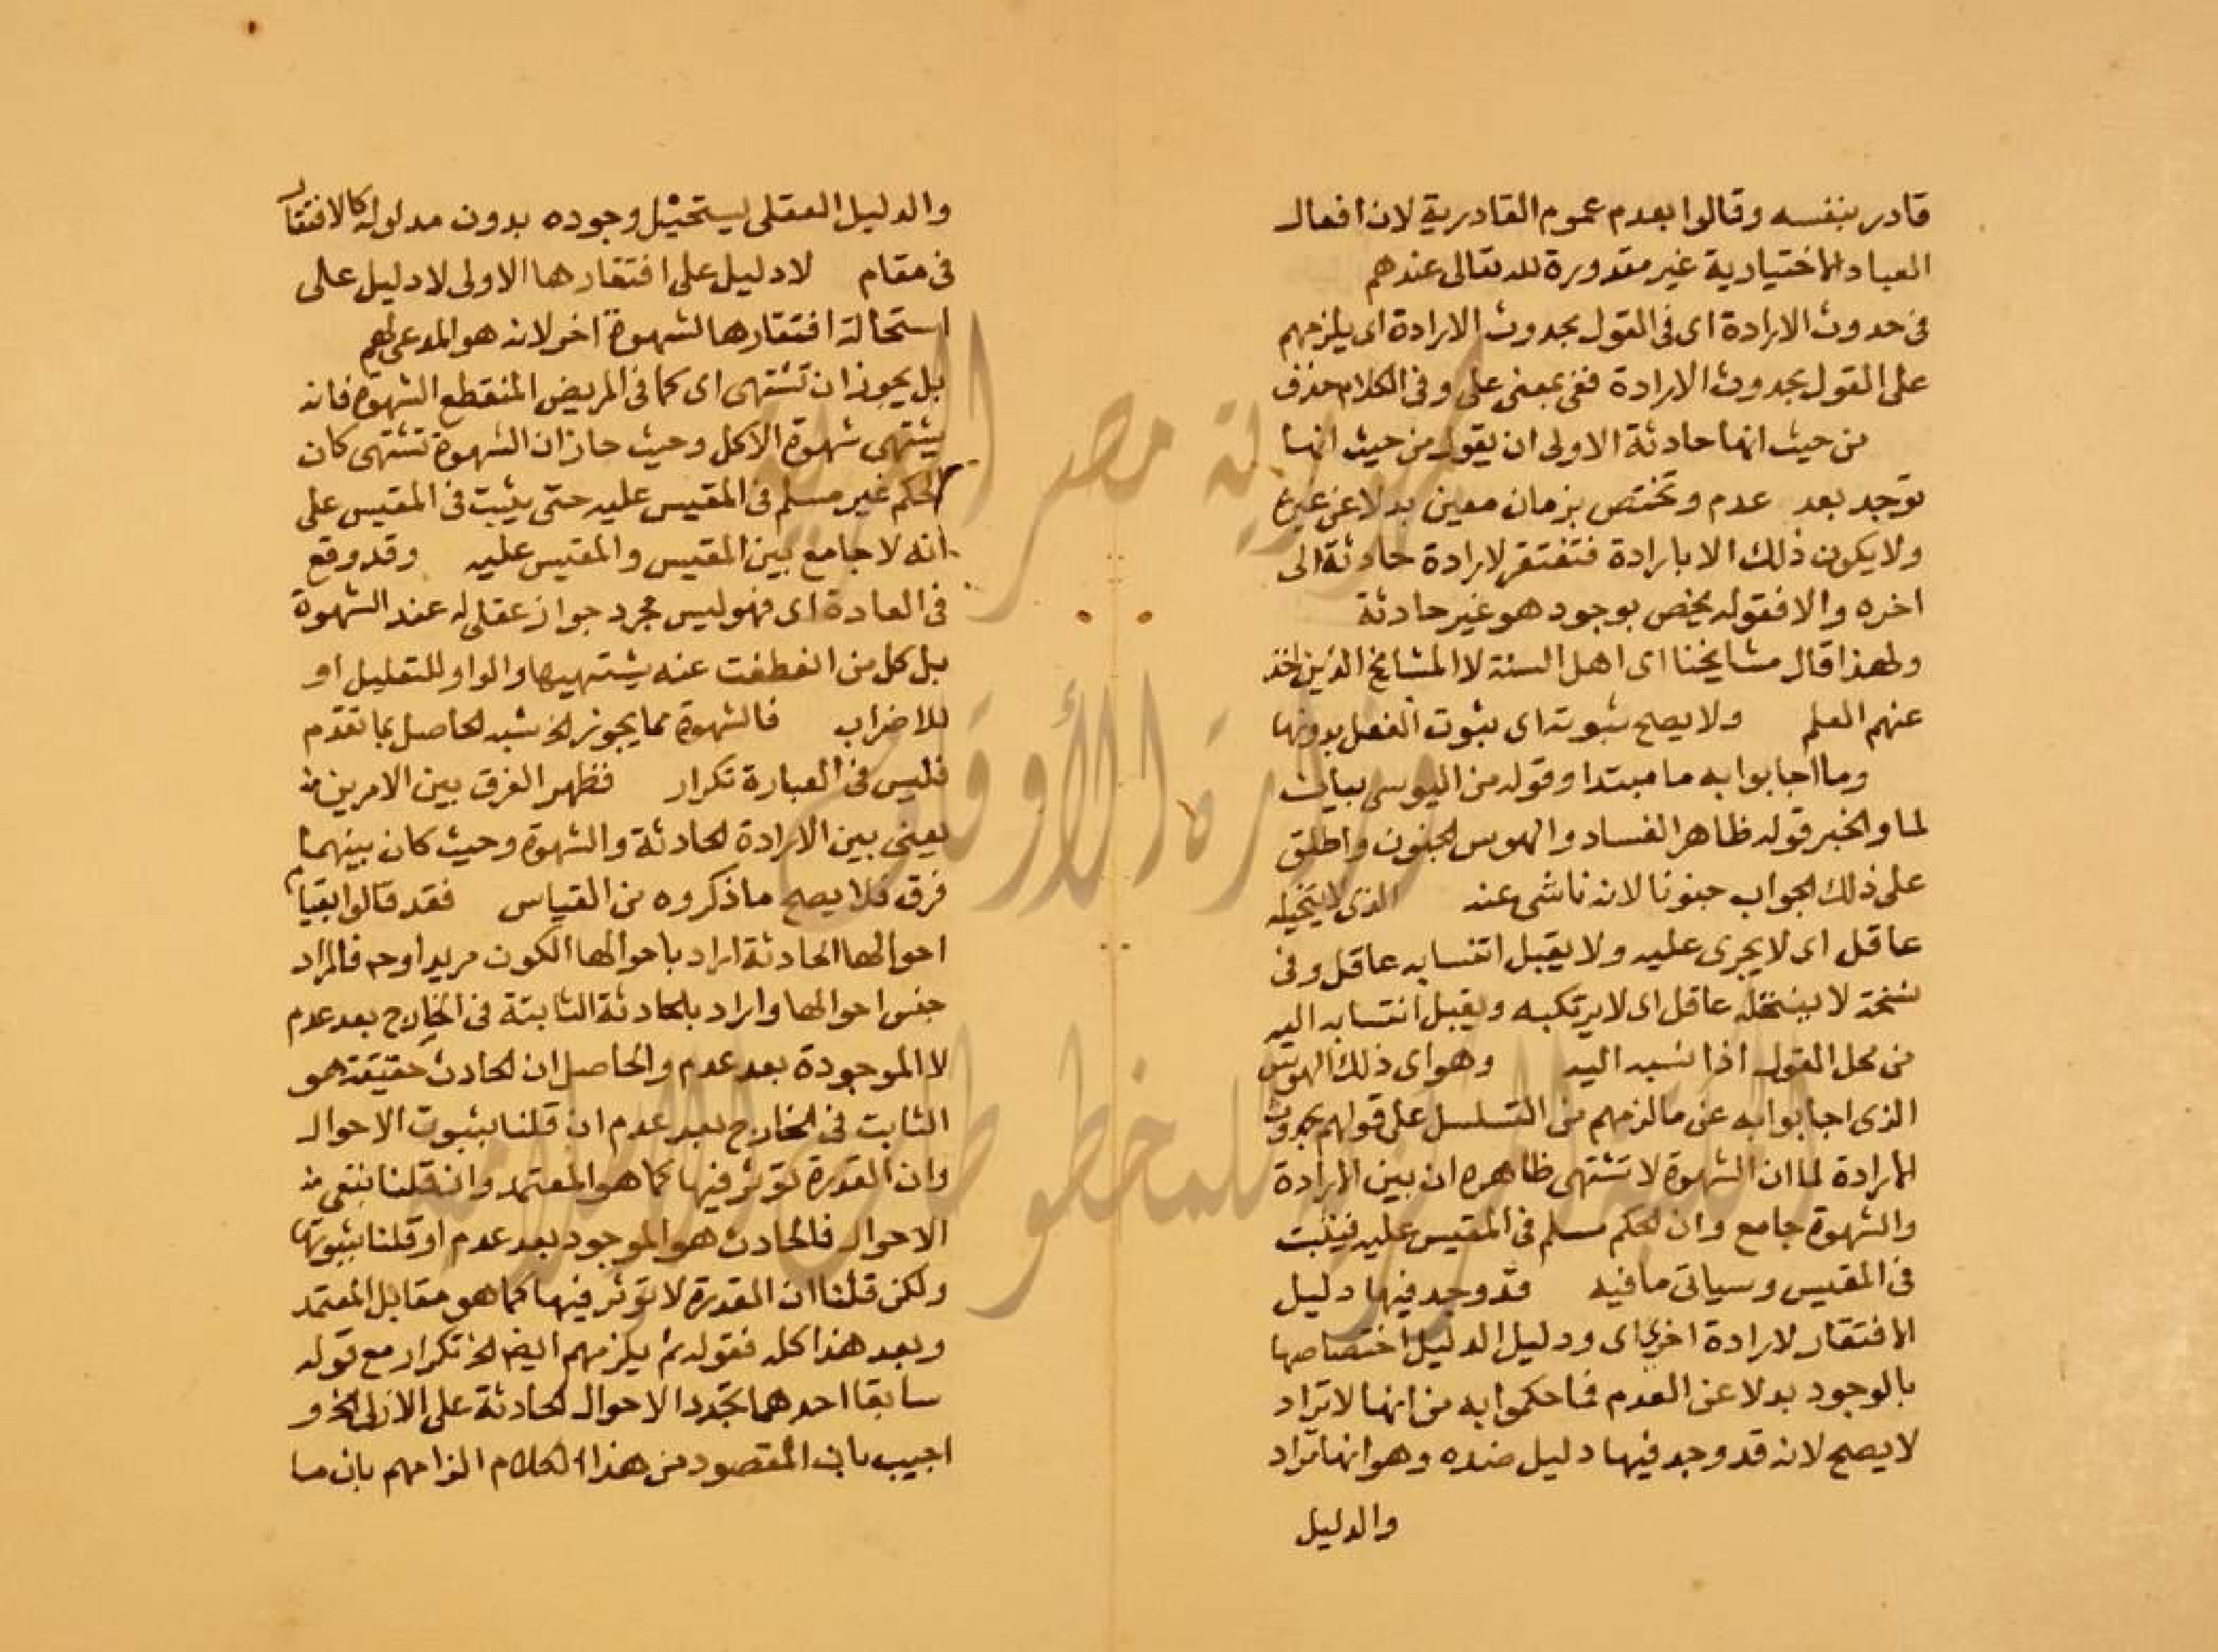 قادر بنفسه وقالوا بعدم عموم القادرية لان افعال
العباد الاختيارية غير مقدورة لله تعالى عندهم
فى حدوث الارادة اى فى القول بحدوث الارادة اى يلزمهم
على القول بحدوث الارادة ففى بمعنى على وفى الكلام حذف
من حيث انها حادثة الاولى ان يقول من حيث انها
توجد بعد عدم وتختص بزمان معين بدلا عن غيره
ولا يكون ذلك الا بارادة فتفتقر لارادة حادثة الى
اخره والا فقوله يخص بوجود هو غير حادثة
ولهذا قال مشايخنا اى اهل السنة لا المشايخ الذين اخذ
عنهم العلم ولا يصح ثبوته اى ثبوت الفعل بدونها
وما اجابوا به ما مبتدا وقوله من الهوس بيان
لما والخبر قوله ظاهر الفساد والهوس الجنون واطلق
على ذلك الجواب جنونا لانه ناشى عنه الذى لا يتخيله
عاقل اى لا يجرى عليه ولا يقبل انتسابه عاقل وفى
نسخة لا ينتحله عاقل اى لا يرتكبه ويقبل انتسابه اليه
من محل القول اذا نسبه اليه وهو اى ذلك الهوس
الذى اجابوا به عن ما لزمهم من التسلسل على قولهم بحدوث
الارادة لما ان الشهوة لا تشتهى ظاهره ان بين الارادة
والشهوة جامع وان الحكم مسلم فى المقيس عليه فيثبت
فى المقيس وسياتى ما فيه قد وجد فيها دليل
الافتقار لارادة اخرى اى ودليل الدليل اختصاصها
بالوجود بدلا عن العدم فما حكموا به من انها لا تراد
لا يصح لانه قد وجد فيها دليل ضده وهو انها تراد
والدليل
والدليل العقلى يستحيل وجوده بدون مدلوله كالافتقار
فى مقام لا دليل على افتقارها الاولى لا دليل على
استحالة افتقارها لشهوة اخر لانه هو المدعى لهم
بل يجوز ان تشتهى اى كما فى المريض المنقطع الشهوة فانه
يشتهى شهوة الاكل وحيث جاز ان الشهوة تشتهى كان
الحكم غير مسلم فى المقيس عليه حتى يثبت فى المقيس على
انه لا جامع بين المقيس والمقيس عليه وقد وقع
فى العادة اى فهو ليس مجرد جواز عقلى له عند الشهوة
بل كل من انقطعت عنه يشتهيها والواو للتعليل او
للاضراب فالشهوة مما يجوز الخ شبه الحاصل بما تقدم
فليس فى العبارة تكرار فظهر الفرق بين الامرين منه
يعنى بين الارادة الحادثة والشهوة وحيث كان بينهما
فرق فلا يصح ما ذكروه من القياس فقد قالوا بقيام
احوالها الحادثة اراد باحوالها الكون مريدا وحـ فالمراد
جنس احوالها واراد بالحادثة الثابتة فى الخارج بعد عدم
لا الموجودة بعد عدم والحاصل ان الحادث حقيقة هو
الثابت فى الخارج بعد عدم ان قلنا بثبوت الاحوال
وان القدرة تؤثر فيها كما هو المعتمد وان قلنا بنفى منه
الاحوال فالحادث هو الموجود بعد عدم او قلنا بثبوتها
ولكن قلنا ان القدرة لا تؤثر فيها كما هو مقابل المعتمد
وبعد هذا كله فقوله ثم يلزمهم ايضا الخ تكرار مع قوله
سابقا احدهما تجدد الاحوال الحادثة على الازلى الخ و
اجيب بان المقصود من هذا الكلام الزامهم بان ما